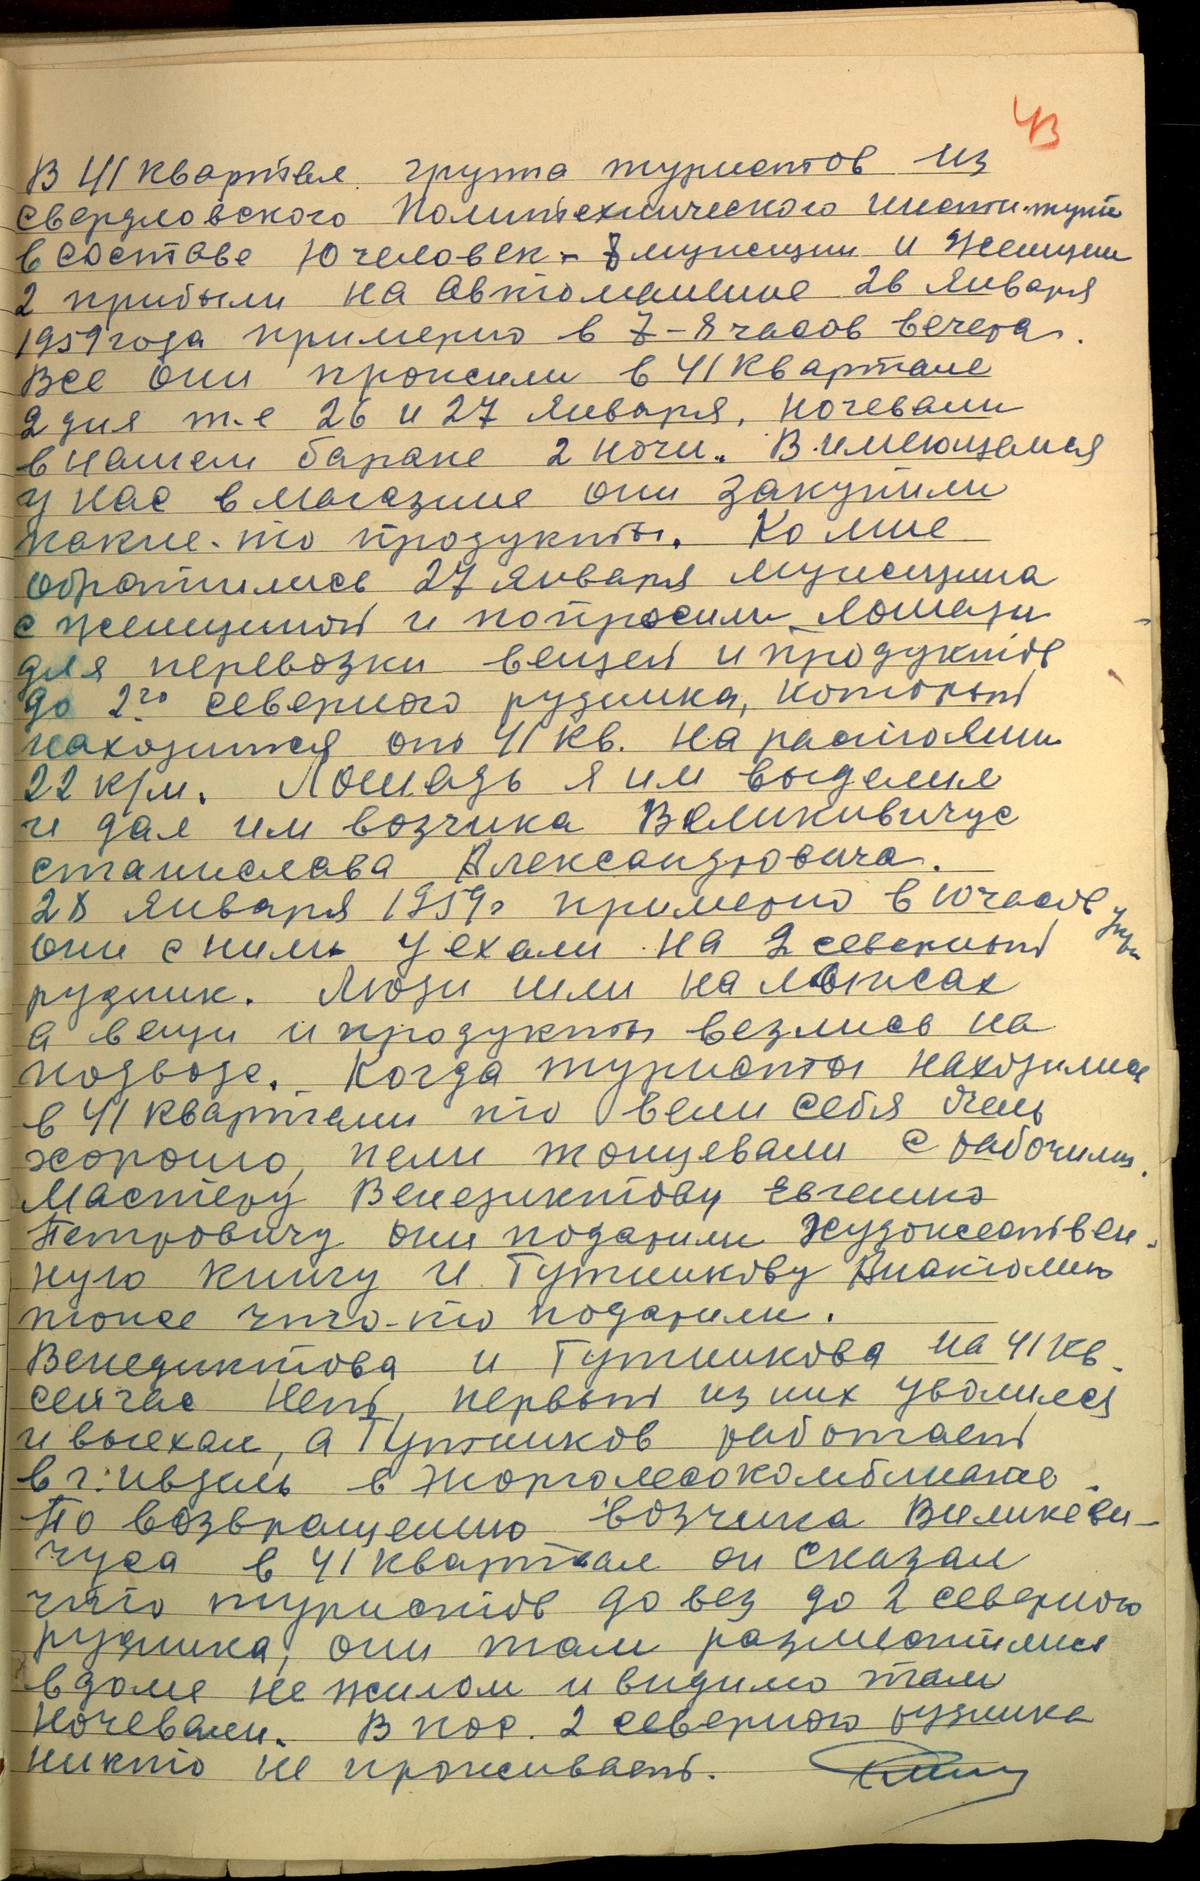 43
В 41 квартал группа туристов из
свердловского Политехнического института
в составе 10 человек - 8 мужщин и женщин
2 прибыли на автомашине 26 Января
1959 года примерно в 7-8 часов вечера.
Все они прожили в 41 квартале
2 дня т-е 26 и 27 Января, ночевали
в нашем бараке 2 ночи. В имеющемся
у нас в магазине они закупили
какие-то продукты. Ко мне
обратились 27 Января мужщина
с женщиной и попросили лошади
для перевозки вещей и продуктов
до 2го северного рудника, который
находится от 41 кв. на растоянии
22 к/м. Лошадь я им выделил
и дал им возчика Великявичус
станислава Александровича.
28 Января 1959г примерно в 10 часов утра
они с ним уехали на 2 северный
рудник. Люди шли на лыжах
а вещи и продукты везлись на
подводе. Когда туристы находились
в 41 квартали то вели себя очень
хорошо, пели танцевали с рабочими.
Мастеру Венедиктову Евгению
Петровичу они подарили художествен-
ную книгу и Тутинкову Анатолию
тоже что-то подарили.
Венедиктова и Тутинкова на 41 кв.
сейчас нет, первый из них уволился
и выехал, а Тутинков работает
в г. ивдель в торголесокомбинате.
По возвращению возчика Великеви-
чуса в 41 квартал он сказал
что туристов довез до 2 северного
рудника, они там разместились
в доме не жилом и видимо там
ночевали. В пос. 2 северного рудника
никто не проживает.